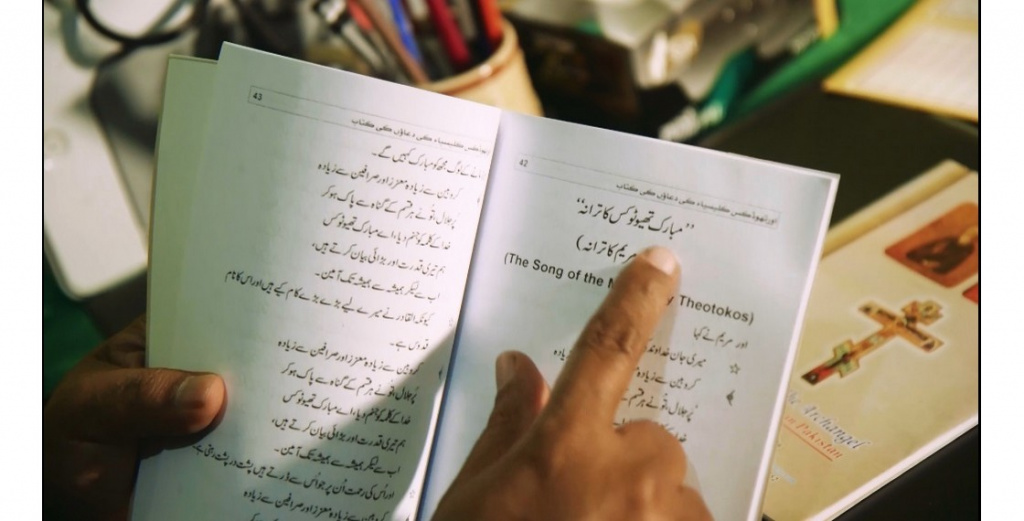 42
اورتھوڈکس کلیسیاء کی دعاؤں کی کتاب
”مبارک تھیوٹوکس کا ترانہ“
مریم کا ترانہ)
(The Song of the Theotokos)
اور مریم نے کہا
میری جان خداوند
کروبین سے زیادہ
پُرجلال، تُو نے ہر قسم
خدا کے کلمہ
43
کلیسیاء کی دعاؤں کی کتاب
کے لوگ مجھ کو مبارک کہیں گے۔
کروبین سے زیادہ معزز اور صرافین سے زیادہ
پُرجلال، تُو نے ہر قسم کے گناہ سے پاک ہو کر
خدا کے کلمہ کو جنم دیا، اے مبارک تھیوٹوکس
ہم تیری قدرت اور بڑائی بیان کرتے ہیں،
اب سے لیکر ہمیشہ سے ہمیشہ تک آمین۔
کیونکہ القادر نے میرے لیے بڑے بڑے کام کیے ہیں اور اس کا نام
قدوس ہے۔
کروبین سے زیادہ معزز اور صرافین سے زیادہ
پُرجلال، تُو نے ہر قسم کے گناہ سے پاک ہو کر
خدا کے کلمہ کو جنم دیا، اے مبارک تھیوٹوکس
ہم تیری قدرت اور بڑائی بیان کرتے ہیں،
اب سے لیکر ہمیشہ سے ہمیشہ تک آمین۔
اور اُس کی رحمت اُن پر جو اُس سے ڈرتے ہیں پشت در پشت رہتی ہے۔
کروبین سے زیادہ معزز اور صرافین سے زیادہ
The Archangel
in Pakistan